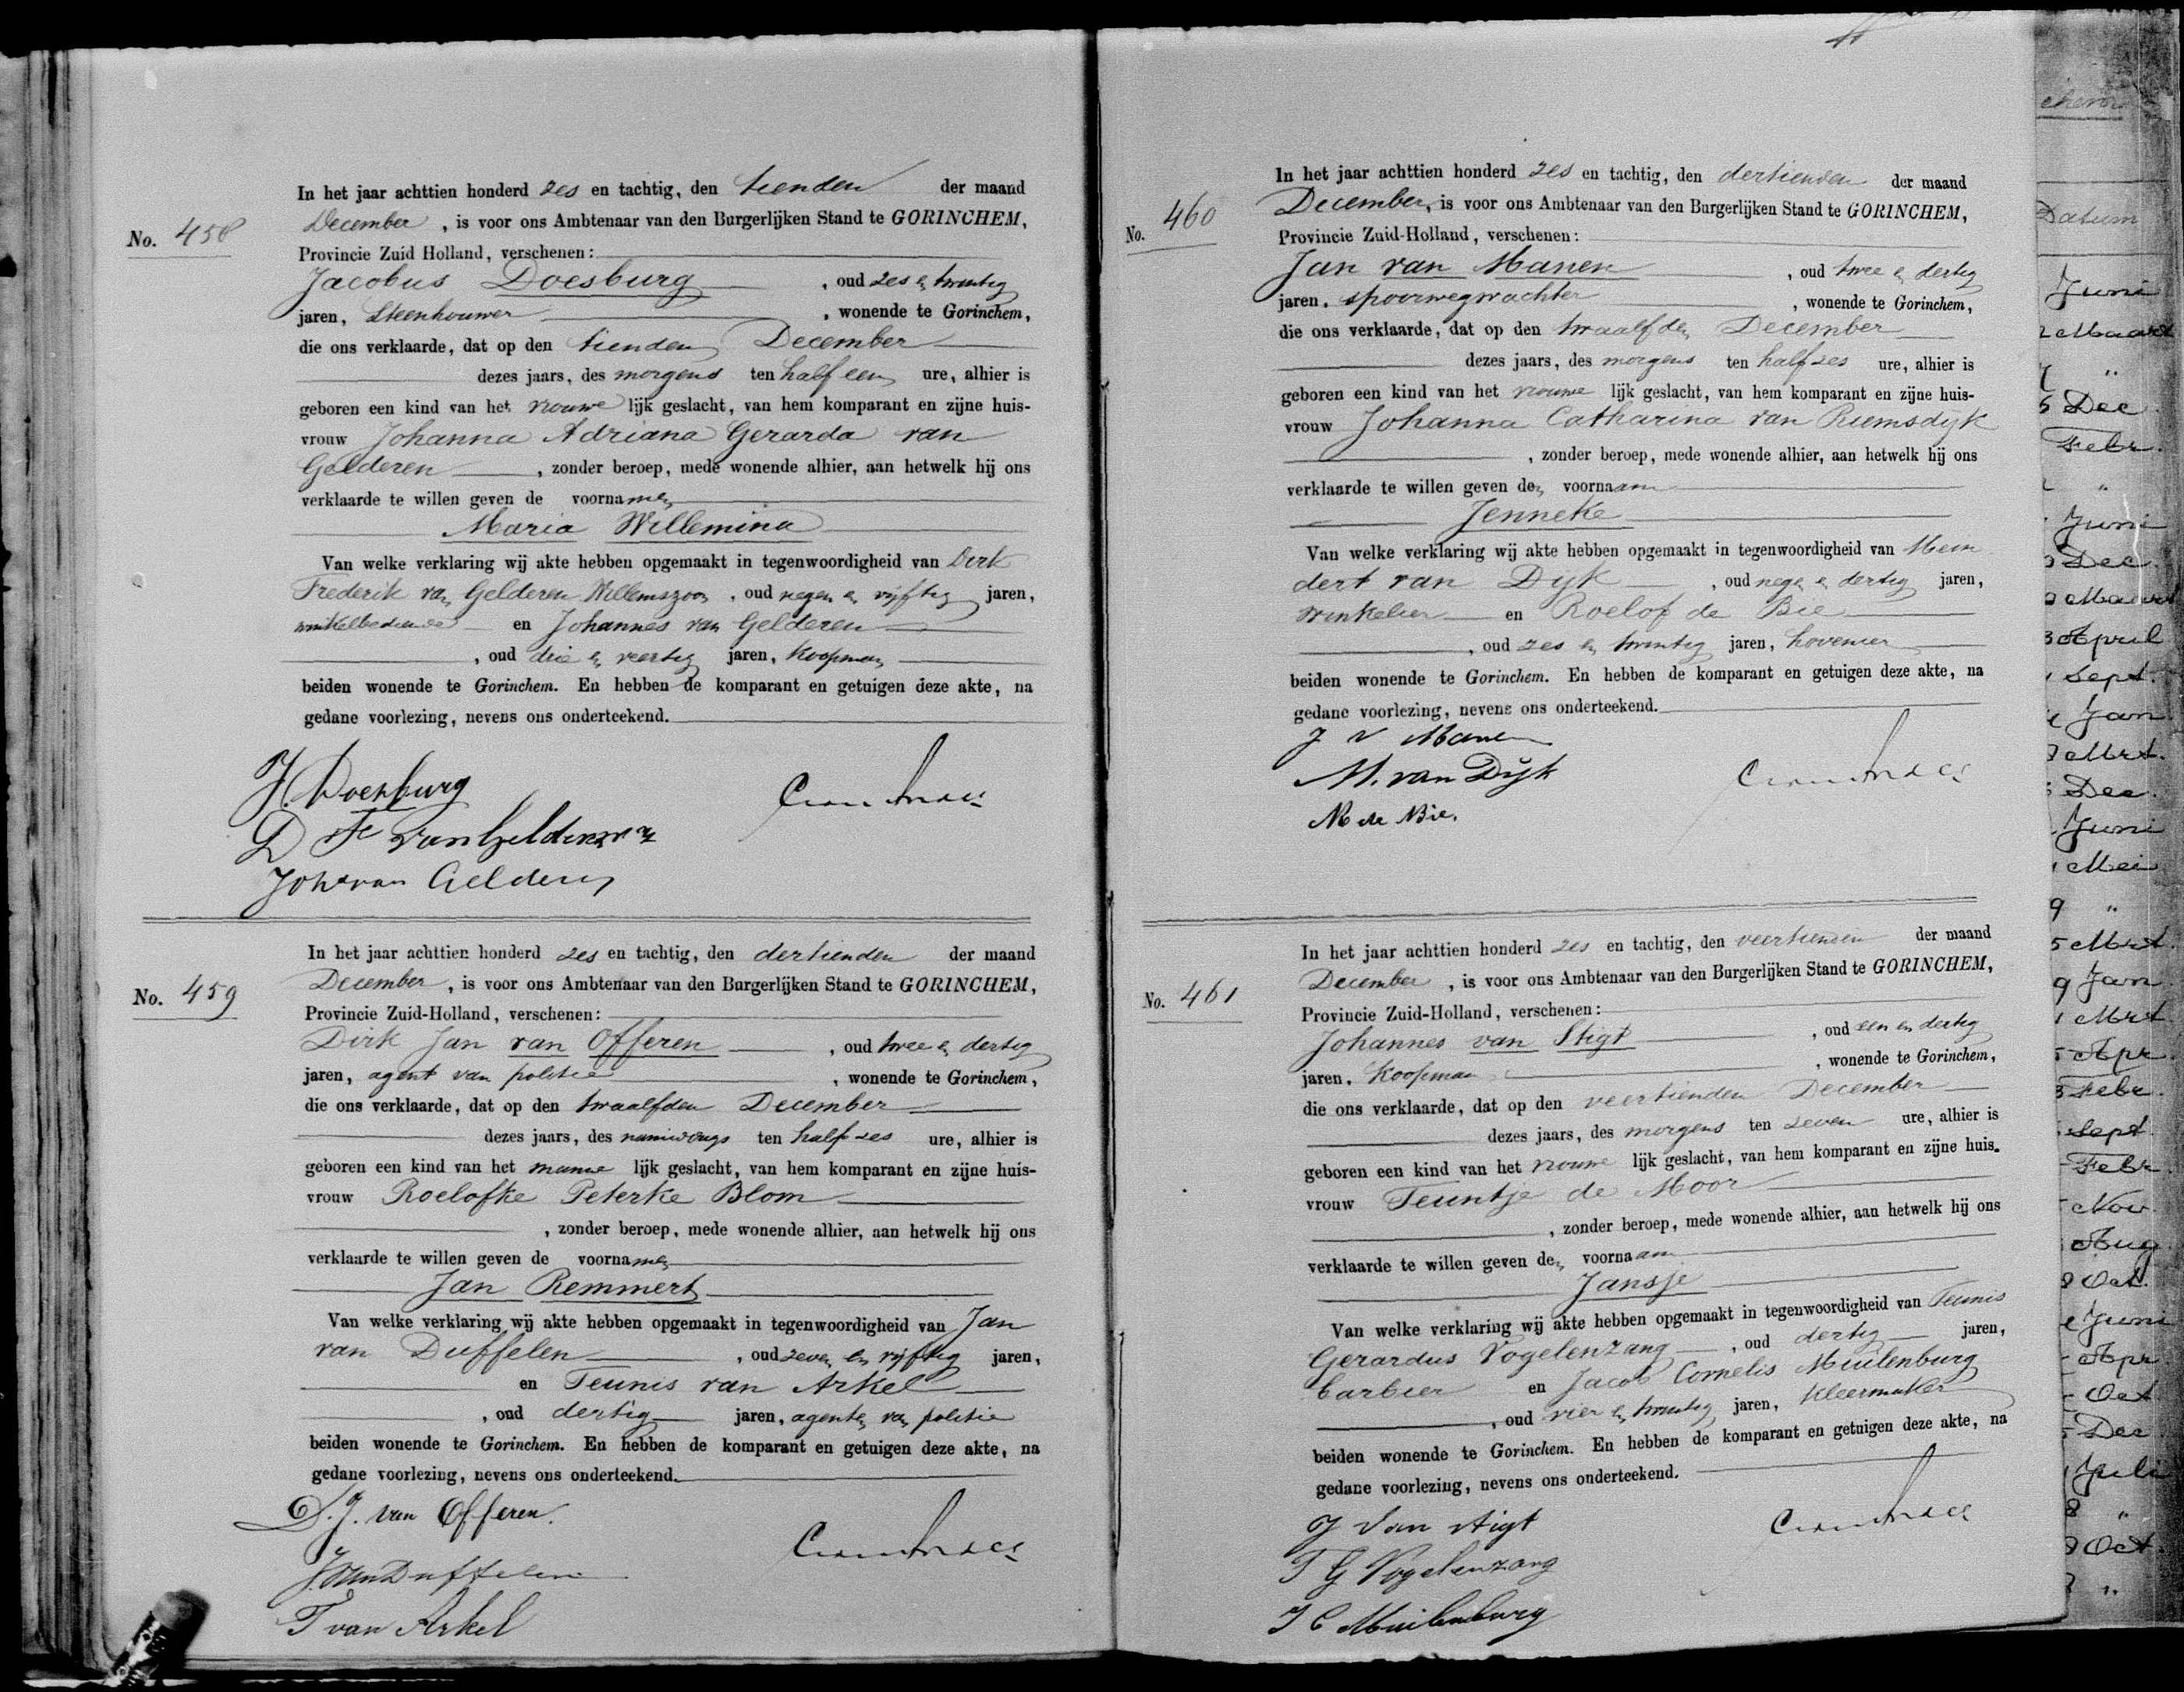 No. 458
In het jaar achttien honderd zes en tachtig, den tienden der maand
December, is voor ons Ambtenaar van den Burgerlijken Stand te GORINCHEM,
Provincie Zuid Holland, verschenen:
Jacobus Doesburg, oud zes en twintig
jaren, Steenhouwer, wonende te Gorinchem,
die ons verklaarde, dat op den tienden December
dezes jaars, des morgens ten half een ure, alhier is
geboren een kind van het vrouwe lijk geslacht, van hem komparant en zijne huis-
vrouw Johanna Adriana Gerarda van
Gelderen, zonder beroep, mede wonende alhier, aan hetwelk hij ons
verklaarde te willen geven de voornamen
Maria Willemina
Van welke verklaring wij akte hebben opgemaakt in tegenwoordigheid van Dirk
Frederik van Gelderen Willemszoon, oud negen en vijftig jaren,
winkelbediende en Johannes van Gelderen
, oud drie en veertig jaren, Koopman
beiden wonende te Gorinchem. En hebben de komparant en getuigen deze akte, na
gedane voorlezing, nevens ons onderteekend.
J. Doesburg
D F van Gelderen Wz
Joh van Gelderen
No. 459
In het jaar achttien honderd zes en tachtig, den dertienden der maand
December, is voor ons Ambtenaar van den Burgerlijken Stand te GORINCHEM,
Provincie Zuid-Holland, verschenen:
Dirk Jan van Offeren, oud twee en dertig
jaren, agent van politie, wonende te Gorinchem,
die ons verklaarde, dat op den twaalfden December
dezes jaars, des namiddags ten half zes ure, alhier is
geboren een kind van het manne lijk geslacht, van hem komparant en zijne huis-
vrouw Roelofke Peterke Blom
, zonder beroep, mede wonende alhier, aan hetwelk hij ons
verklaarde te willen geven de voornamen
Jan Remmert
Van welke verklaring wij akte hebben opgemaakt in tegenwoordigheid van Jan
van Duffelen, oud zeven en vijftig jaren,
en Teunis van Arkel
, oud dertig jaren, agenten van politie
beiden wonende te Gorinchem. En hebben de komparant en getuigen deze akte, na
gedane voorlezing, nevens ons onderteekend.
D. J. van Offeren.
J. van Duffelen
T van Arkel
No. 460
In het jaar achttien honderd zes en tachtig, den dertienden der maand
December, is voor ons Ambtenaar van den Burgerlijken Stand te GORINCHEM,
Provincie Zuid-Holland, verschenen:
Jan van Manen, oud twee en dertig
jaren, spoorwegwachter, wonende te Gorinchem,
die ons verklaarde, dat op den twaalfden December
dezes jaars, des morgens ten half zes ure, alhier is
geboren een kind van het vrouwe lijk geslacht, van hem komparant en zijne huis-
vrouw Johanna Catharina van Riemsdijk
, zonder beroep, mede wonende alhier, aan hetwelk hij ons
verklaarde te willen geven den voornaam
Jenneke
Van welke verklaring wij akte hebben opgemaakt in tegenwoordigheid van Mein
dert van Dijk, oud negen en dertig jaren,
winkelier en Roelof de Bie
, oud zes en twintig jaren, hovenier
beiden wonende te Gorinchem. En hebben de komparant en getuigen deze akte, na
gedane voorlezing, nevens ons onderteekend.
J v Manen
M. van Dijk
R de Bie.
No. 461
In het jaar achttien honderd zes en tachtig, den veertienden der maand
December, is voor ons Ambtenaar van den Burgerlijken Stand te GORINCHEM,
Provincie Zuid-Holland, verschenen:
Johannes van Stigt, oud een en dertig
jaren, Koopman, wonende te Gorinchem,
die ons verklaarde, dat op den veertienden December
dezes jaars, des morgens ten zeven ure, alhier is
geboren een kind van het vrouwe lijk geslacht, van hem komparant en zijne huis-
vrouw Teuntje de Moor
, zonder beroep, mede wonende alhier, aan hetwelk hij ons
verklaarde te willen geven den voornaam
Jansje
Van welke verklaring wij akte hebben opgemaakt in tegenwoordigheid van Teunis
Gerardus Vogelenzang, oud dertig jaren,
barbier en Jacob Cornelis Muilenburg
, oud vier en twintig jaren, kleermaker
beiden wonende te Gorinchem. En hebben de komparant en getuigen deze akte, na
gedane voorlezing, nevens ons onderteekend.
J van Stigt
T G Vogelenzang
J C Muilenburg
Datum
Juni
Maart
"
Dec
Febr.
"
Juni
Dec.
Maart
April
Sept.
Jan
Mrt.
Dec.
Juni
Mei
"
Mrt.
Jan
Mrt
Apr.
Febr.
Sept.
Febr
Nov.
Aug
Oct.
Juni
Apr
Oct
Dec
Juli
"
Oct.
"